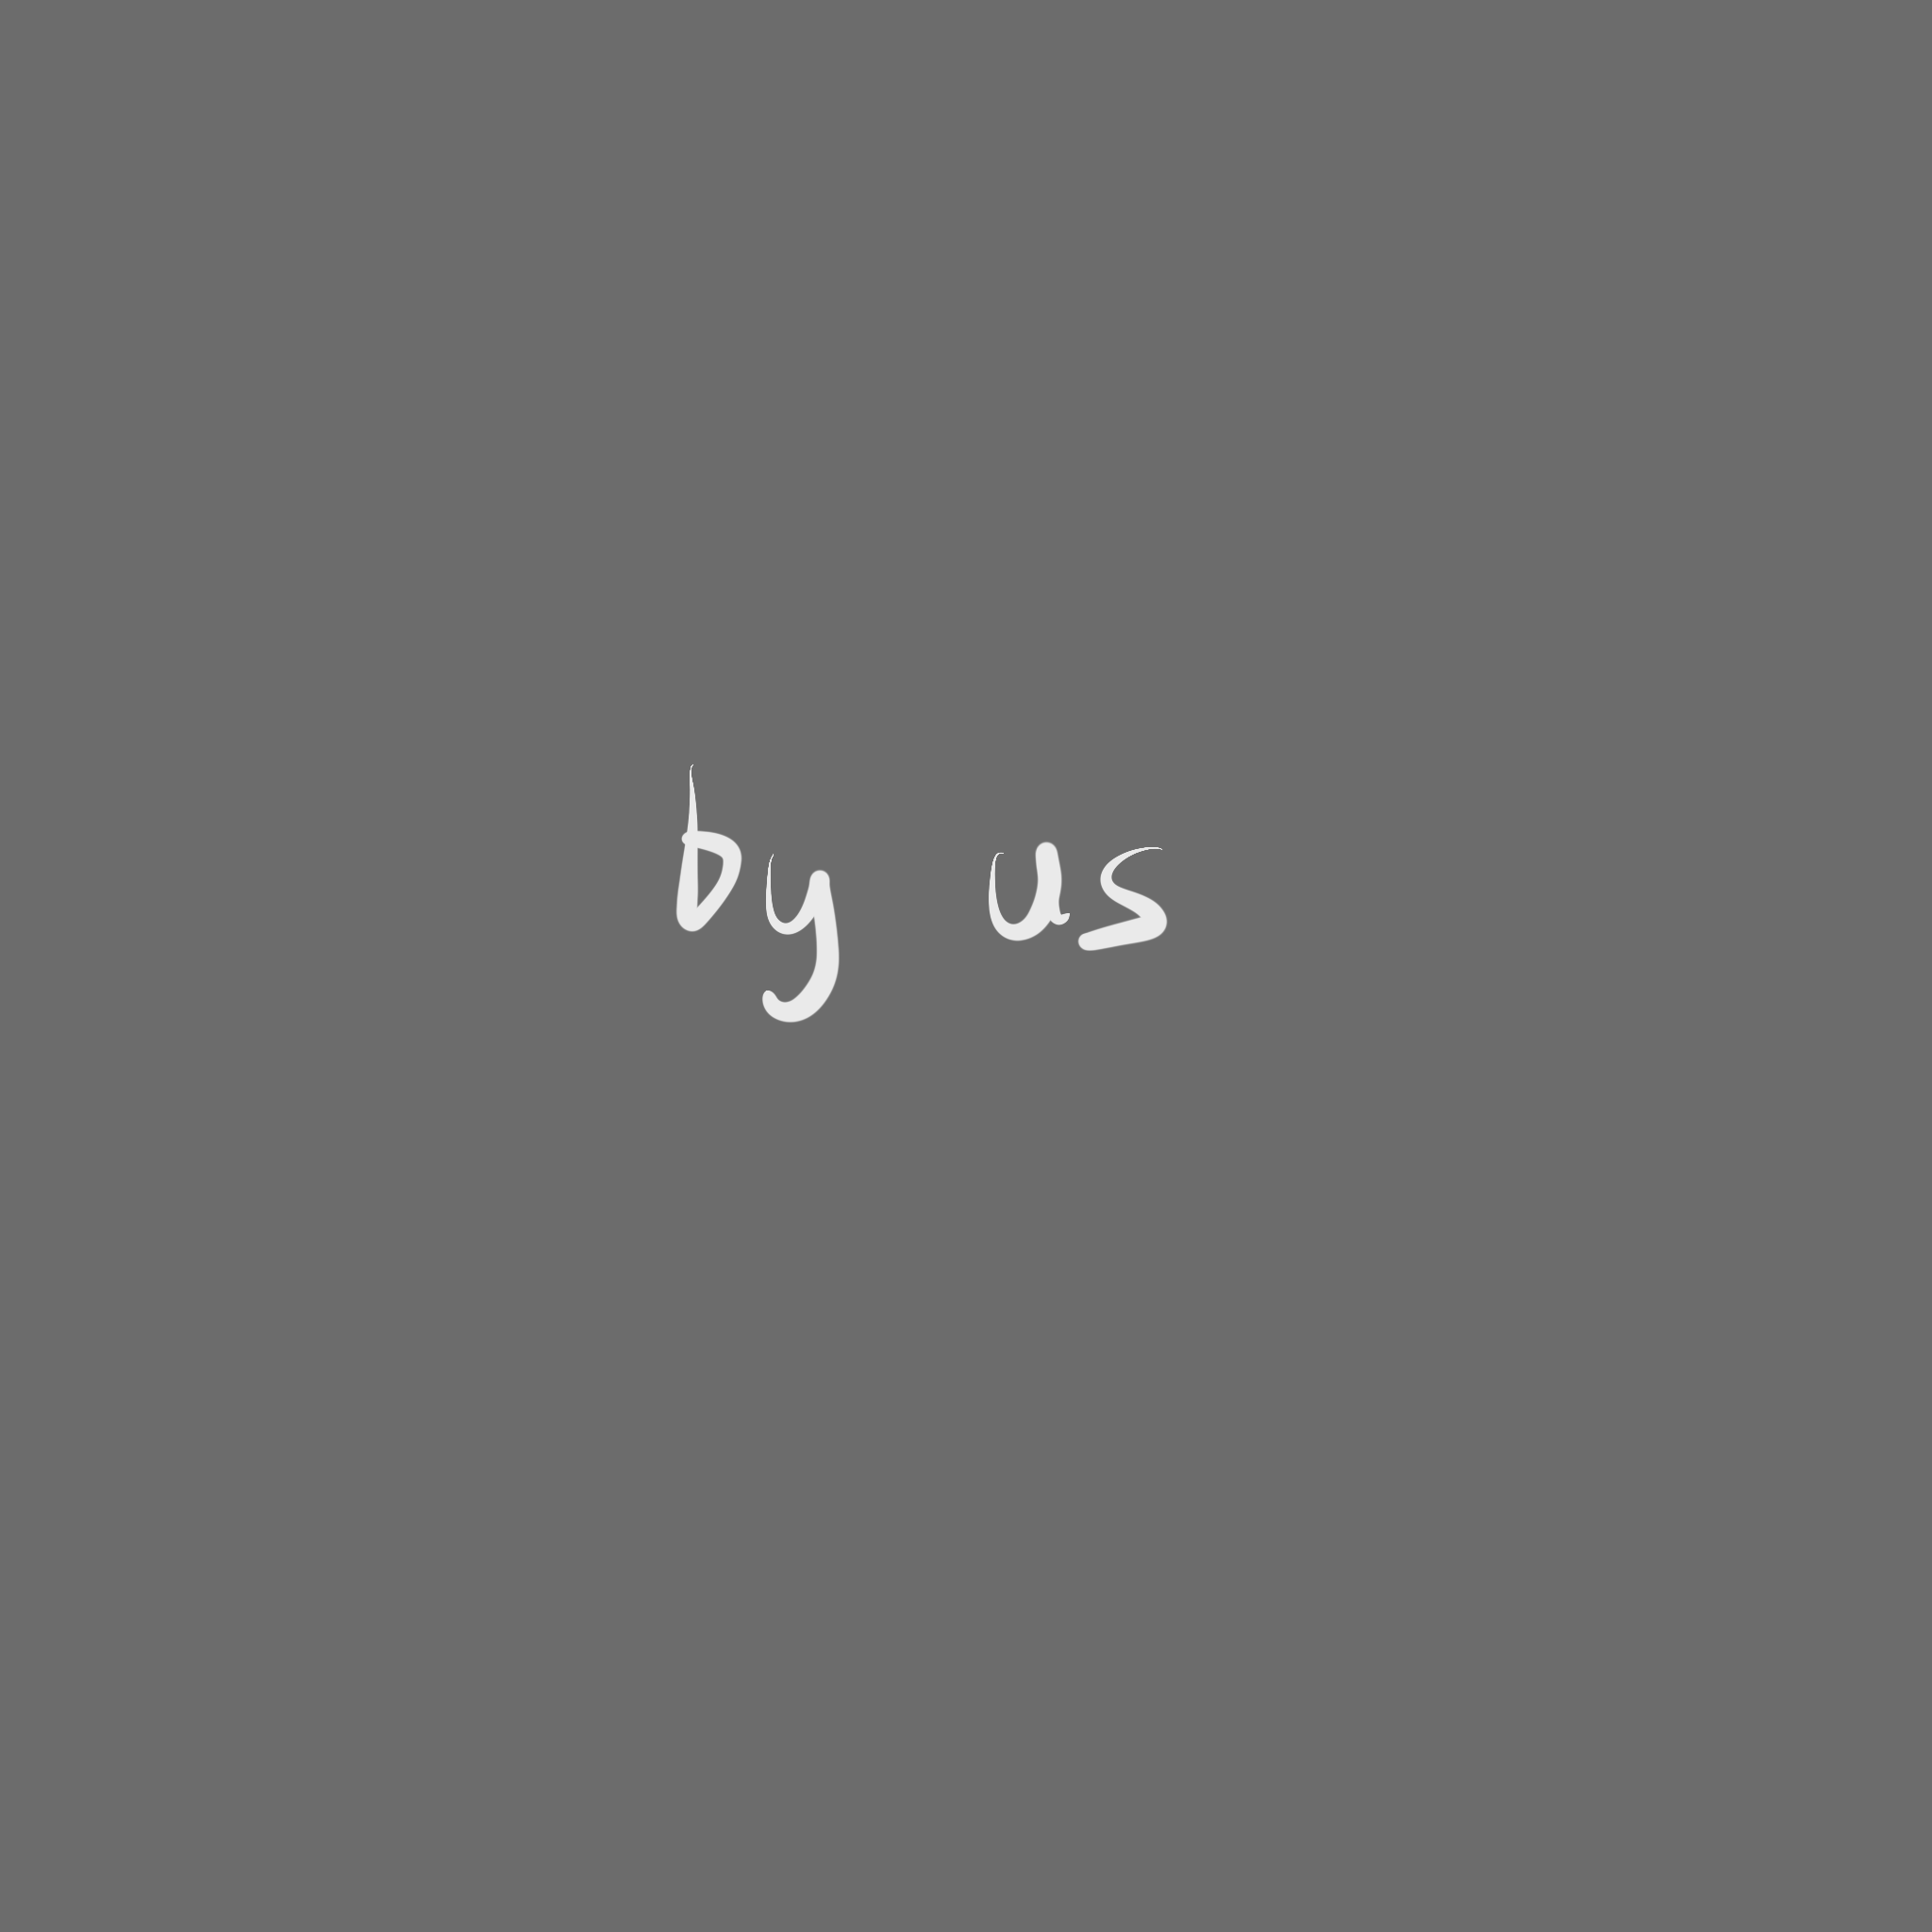 by us